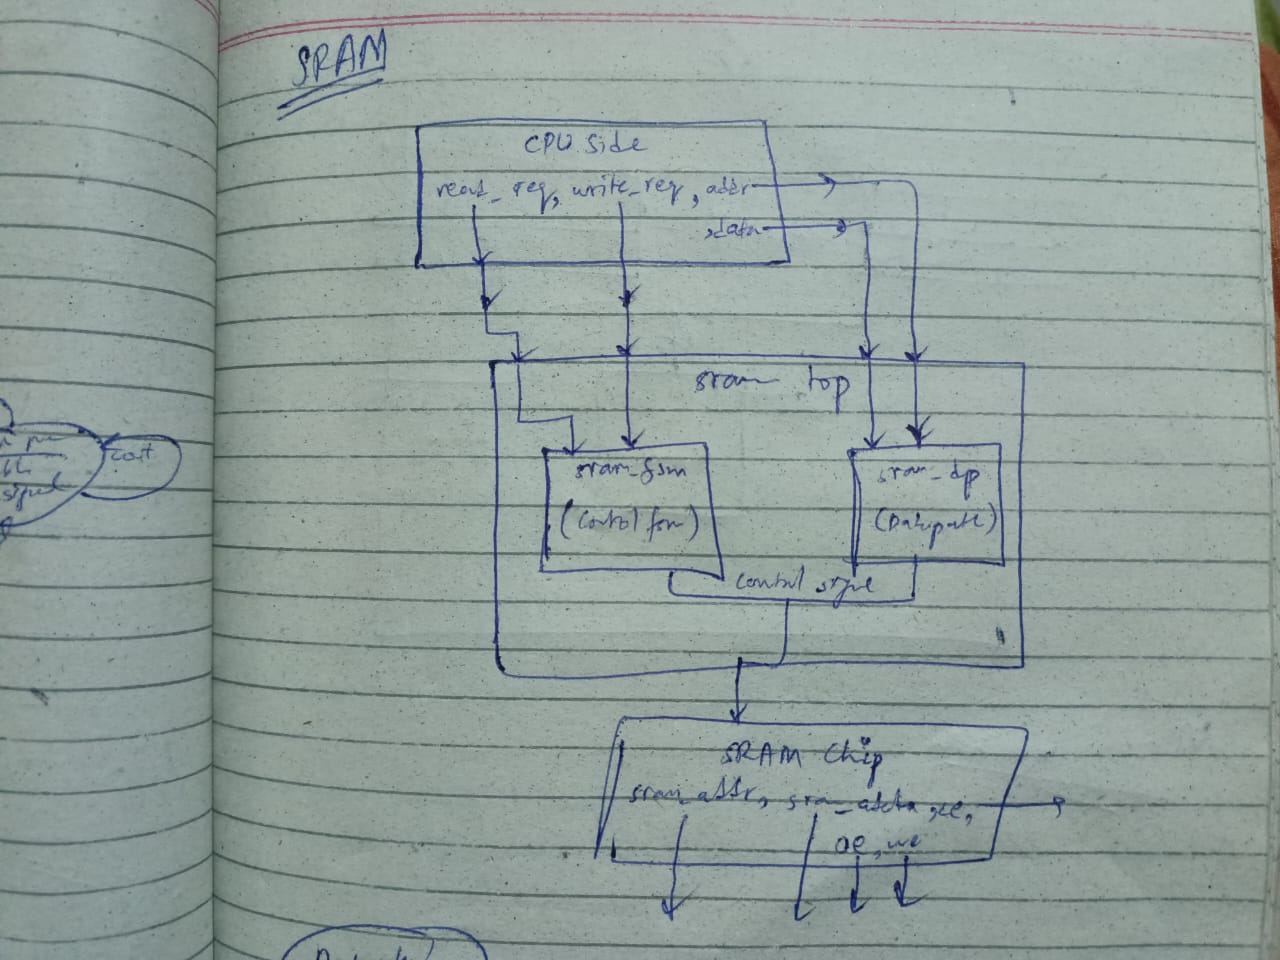 SRAM
CPU Side
read_req, write_req, addr
,data
sram top
sram_fsm
(Control fsm)
sram_dp
(Datapath)
control signal
SRAM Chip
sram_addr, sram_data, ce,
oe, we
cont
signal